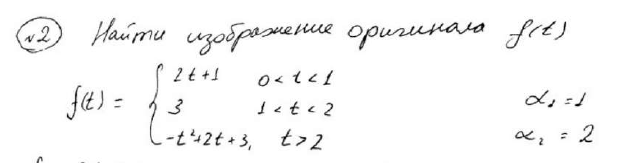 №2 Найти изображение оригинала f(t)
2t+1 0<t<1
f(t) = { 3 1<t<2 α₁ =1
-t²+2t+3, t>2 α₂ = 2